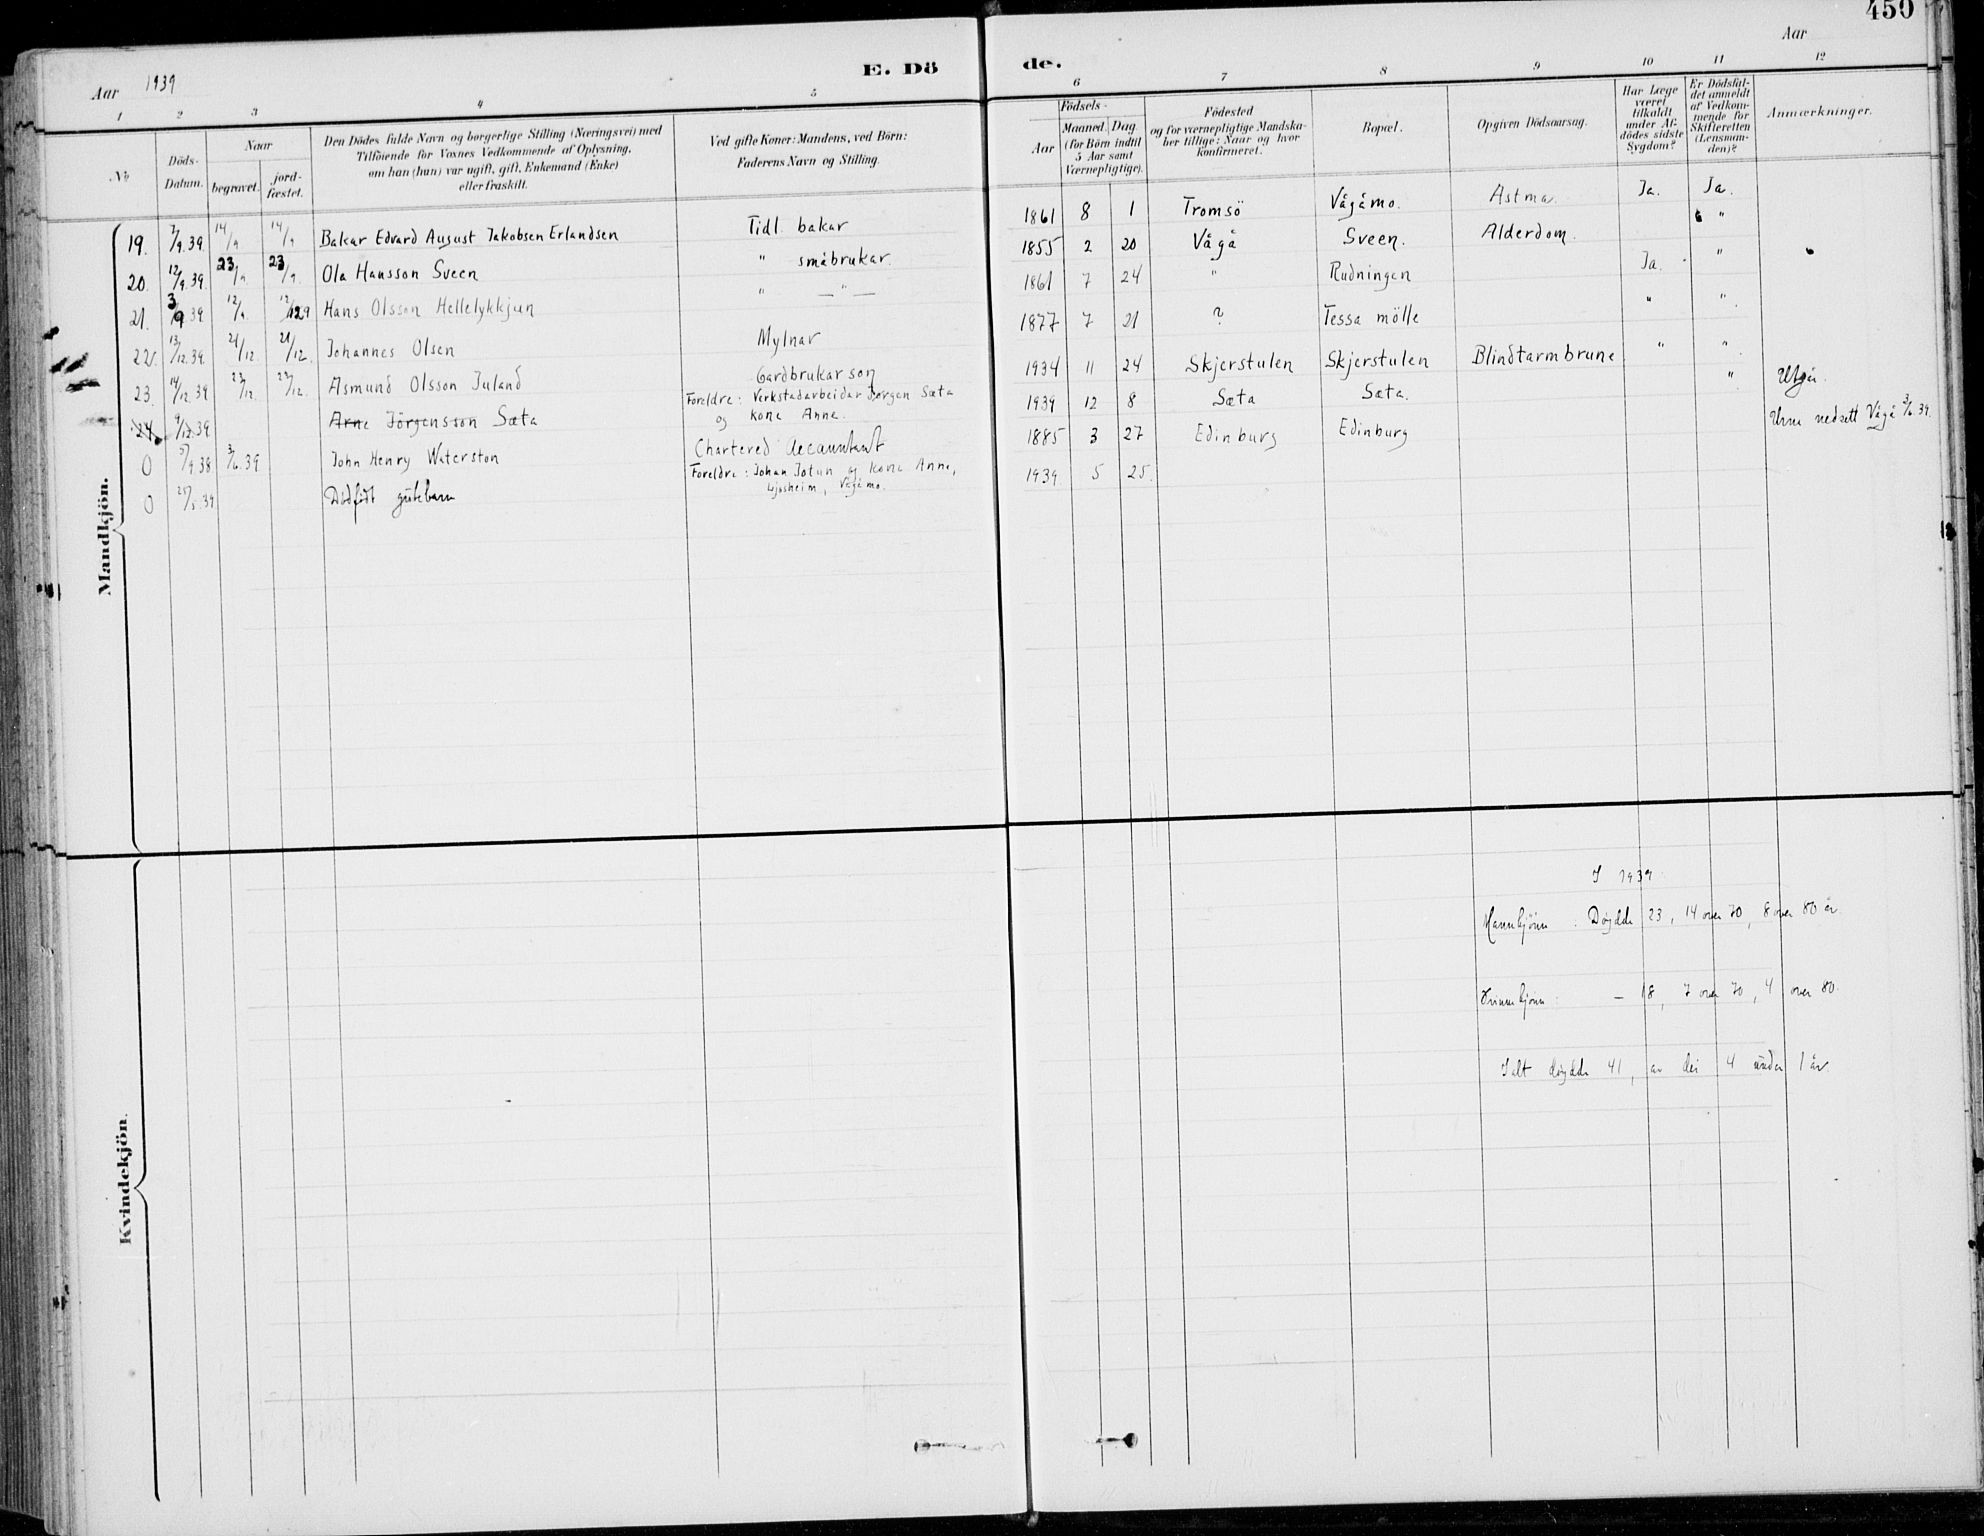 450
Aar 1939
E. Dö
de.
Aar
1 2 3 4 5 6 7 8 9 10 11 12
No
Döds-
Datum.
Naar
begravet.
jord-
fæstet.
Den Dödes fulde Navn og borgerlige Stilling (Næringsvei) med
Tilföiende for Voxnes Vedkommende af Oplysning,
om han (hun) var ugift, gift, Enkemand (Enke)
eller fraskilt.
Ved gifte Koner: Mandens, ved Börn:
Faderens Navn og Stilling.
Födsels-
Aar
Maaned. Dag.
(for Börn indtil
5 Aar samt
Værnepligtige).
Födested
og for værnepligtige Mandska-
ber tillige: Naar og hvor
konfirmeret.
Bopæl.
Opgiven Dödsaarsag.
Har Læge
været
tilkaldt
under Af-
dödes sidste
Sygdom?
Er Dödsfal-
det anmeldt
af Vedkom-
mende for
Skifteretten
(Lensman-
den)?
Anmærkninger.
Mandkjön.
19. 7/9.39. 14/9 14/9 Bakar Edvard August Jakobsen Erlandsen Tidl. bakar 1861 8 1 Tromsö Vågåmo. Astma. Ja. Ja.
20. 12/9.39. 23/9. 23/9. Ola Hansson Sveen " småbrukar. 1855 2 20 Vågå Sveen. Alderdom. "
21. 3/9 39 12/9. Hans Olsson Hellelykkjun " —"— 1861 7 24 " Rudningen Ja. "
22. 13/12.39. 21/12. 21/12. Johannes Olsen Mylnar 1877 7 21 ? Tessa mölle " "
23. 14/12.39 23/12. 23/12. Asmund Olsson Juland Gardbrukarson 1934 11 24 Skjerstulen Skjerstulen Blindtarmbrune " "
24. 9/12.39 Arne Jörgensson Sæta Foreldre: Verkstadarbeidar Jörgen Sæta
og kone Anne. 1939 12 8 Sæta Sæta. " Utgår.
0 5/9.38 3/6.39 John Henry Waterston Chartered Accountant 1885 3 27 Edinburg Edinburg Urne nedsett Vågå 3/6 39.
0 25/5.39 Dödfödt gutebarn Foreldre: Johan Jotun og kone Anne,
Ljosheim, Vågåmo. 1939 5 25.
Kvindekjön.
I 1939
Mannkjönn. Döydde 23, 14 over 70, 8 over 80 år.
Kvinnekjönn: — 18, 7 over 70, 4 over 80.
Ialt döydde 41, av dei 4 under 1 år